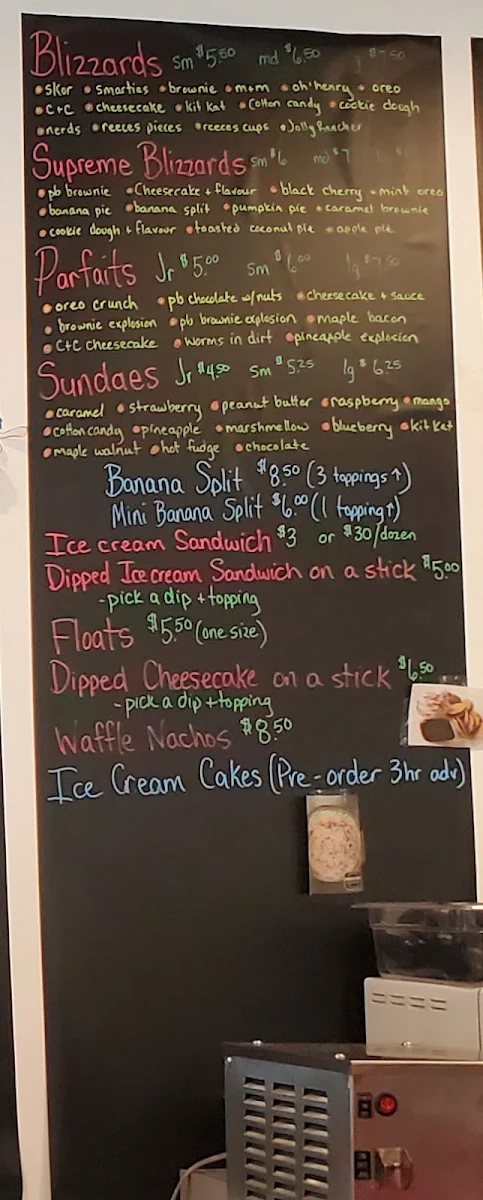 Blizzards sm $5.50 md $6.50 $7.50
• skor • smarties • brownie • m+m • oh'henry • oreo
• C+C • cheesecake • kit kat • cotton candy • cookie dough
• nerds • reeces pieces • reeces cups • Jolly Rancher
Supreme Blizzards sm $6 md $7
• pb brownie • Cheesecake + flavour • black cherry • mint oreo
• banana pie • banana split • pumpkin pie • caramel brownie
• cookie dough + flavour • toasted coconut pie • apple pie
Parfaits Jr $5.00 sm $6.00 lg $7.50
• oreo crunch • pb chocolate w/nuts • cheesecake + sauce
• brownie explosion • pb brownie explosion • maple bacon
• C+C cheesecake • worms in dirt • pineapple explosion
Sundaes Jr $4.50 sm $5.25 lg $6.25
• caramel • strawberry • peanut butter • raspberry • mango
• cotton candy • pineapple • marshmellow • blueberry • kit kat
• maple walnut • hot fudge • chocolate
Banana Split $8.50 (3 toppings ↑)
Mini Banana Split $6.00 (1 topping ↑)
Ice cream Sandwich $3 or $30/dozen
Dipped Ice cream Sandwich on a stick $5.00
- pick a dip + topping
Floats $5.50 (one size)
Dipped Cheesecake on a stick $6.50
- pick a dip + topping
Waffle Nachos $8.50
Ice Cream Cakes (Pre-order 3hr adv)